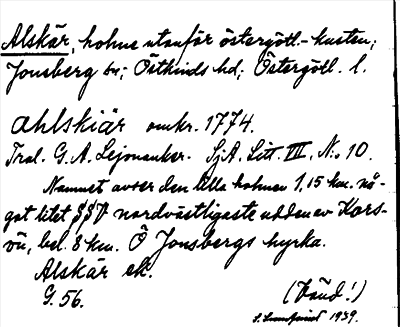 Alskär, holme utanför östergötl.-kusten;
Jonsberg sn; Östkinds hd; Östergötl. l.
Ahlskiär omkr. 1774.
Tral. G. A. Lejonanker. SjA. Litt. III, N:o 10.
Namnet avser den lilla holmen 1,15 km. nå-
got litet SSV nordvästligaste udden av Kors-
ön, bel. 8 km. Ö Jonsbergs kyrka.
Alskär ek.
G. 56.
(Vänd!)
1939.